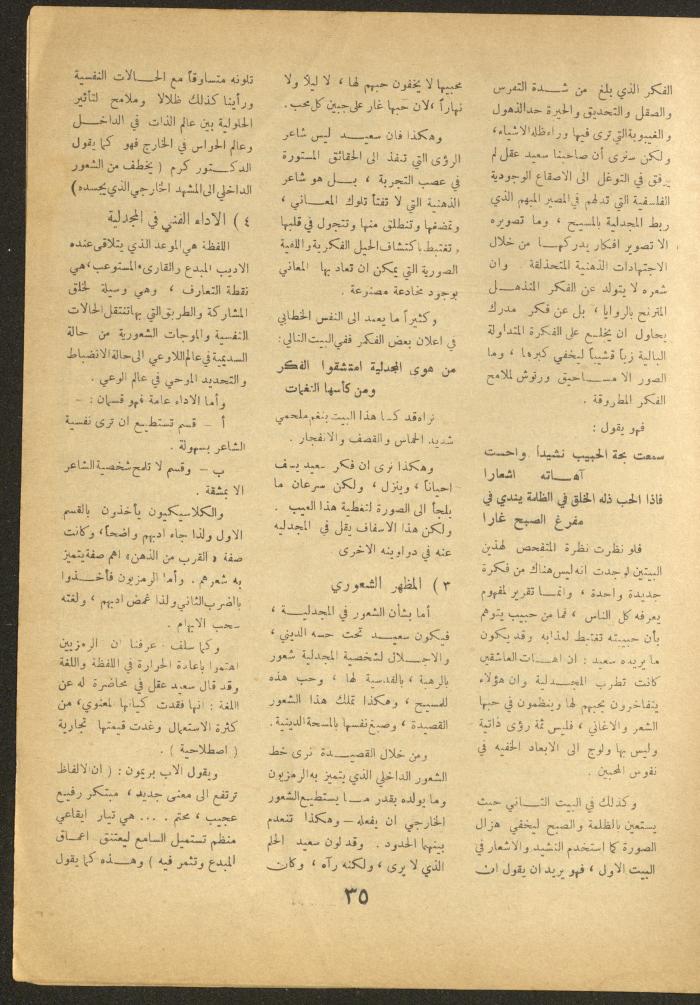 الفكر الذي بلغ من شدة التفرس
والصقل والتحديق والحيرة حد الذهول
والغيبوبة التي ترى فيها وراء ظله الاشياء،
ولكن سنرى أن صاحبنا سعيد عقل لم
يرفق في التوغل الى الاصقاع الوجودية
الفلسفية التي تدلهم في المصير المبهم الذي
ربط المجدلية بالمسيح ، وما تصويره
الا تصوير افكار يدركها من خلال
الاجتهادات الذهنية المتحذلقة . وان
شعره لا يتولد عن الفكر المنذهل
المترنح بالروايا ، بل عن فكر مدرك
يحاول ان يخلع على الفكرة المتداولة
البالية زياً قشيباً ليخفي كبرها ، وما
الصور الا مساحيق ورتوش لملامح
الفكر المطروقة .
فهو يقول :
سمعت بحة الحبيب نشيداً واحست
آهاته اشعارا
فاذا الحب ذله الخلق في الظلمة يندي في
مفرغ الصبح غارا
فلو نظرت نظرة المتفحص لهذين
البيتين لوجدت انه ليس هناك من فكرة
جديدة واحدة ، وانما تقرير لمفهوم
يعرفه كل الناس ، فما من حبيب يتوهم
بأن حبيبته تغتبط لعذابه وقد يكون
ما يريده سعيد : ان اهات العاشقين
كانت تطرب المجدلية وان هؤلاء
يتفاخرون بحبهم لها وينظمون في حبها
الشعر والاغاني ، فليس ثمة رؤى ذاتية
وليس بها ولوج الى الابعاد الخفيه في
نفوس المحبين .
وكذلك في البيت الثاني حيث
يستعين بالظلمة والصبح ليخفي هزال
الصورة كما استخدم النشيد والاشعار في
البيت الاول ، فهو يريد ان يقول ان
محبيها لا يخفون حبهم لها ، لا ليلاً ولا
نهاراً ، لان حبها غار على جبين كل محب .
وهكذا فان سعيد ليس شاعر
الرؤى التي تنفذ الى الحقائق المستورة
في عصب التجربة ، بل هو شاعر
الذهنية التي لا تفتأ تلوك المعاني ،
وتمضغها وتنطلق منها وتتجول في قلبها
وتغتبط باكتشاف الحيل الفكرية واللامية
الصورية التي يمكن ان تعاد بها المعاني
بوجود مخادعة مصنوعة .
وكثيراً ما يعمد الى النفس الخطابي
في اعلان بعض الفكر ففي البيت التالي :
من هوى المجدلية امتشقوا الفكر
ومن كأسها النغمات
نراه قد كسا هذا البيت بنغم ملحمي
شديد الحماس والقصف والانفجار .
وهكذا نرى ان فكر سعيد يسف
احياناً ، وينزل ، ولكن سرعان ما
يلجأ الى الصورة لتغطية هذا العيب .
ولكن هذا الاسفاف يقل في المجدليه
عنه في دواوينه الاخرى
٣ ) المظهر الشعوري
أما بشأن الشعور في المجدلية ،
فيكون سعيد تحت حسه الديني ،
والاجلال لشخصية المجدلية شعور
بالرهبة ، بالقدسية لها ، وحب هذه
للمسيح ، وهكذا تملك هذا الشعور
القصيدة ، وصبغ نفسها بالمسحة الدينية .
ومن خلال القصيدة نرى خط
الشعور الداخلي الذي يتميز به الرمزيون
وما يولده بقدر ما يستطيع الشعور
الخارجي ان يفعله – وهكذا تنعدم
بينهما الحدود . وقد لون سعيد الحلم
الذي لا يرى ، ولكنه رآه ، وكان
تلونه متساوقاً مع الحالات النفسية
ورأينا كذلك ظلالا وملامح لتأثير
الحلولية بين عالم الذات في الداخل
وعالم الحواس في الخارج فهو كما يقول
الدكتور كرم ( يخطف من الشعور
الداخلي الى المشهد الخارجي الذي يجسده )
٤ ) الاداء الفني في المجدلية
اللفظة هي الموعد الذي يتلاقى عنده
الاديب المبدع والقارىء المستوعب ، هي
نقطة التعارف ، وهي وسيلة لخلق
المشاركة والطريق التي بها تنتقل الحالات
النفسية والموجات الشعورية من حالة
السديمية في عالم اللاوعي الى حالة الانضباط
والتحديد الموحي في عالم الوعي .
وأما الاداء عامة فهو قسمان : –
أ – قسم تستطيع ان ترى نفسية
الشاعر بسهولة .
ب – وقسم لا تلمح شخصية الشاعر
الا بمشقة .
والكلاسيكيون يأخذون بالقسم
الاول ولذا جاء ادبهم واضحاً ، وكانت
صفة « القرب من الذهن » اهم صفة يتميز
به شعرهم . وأما الرمزيون فأخذوا
بالضرب الثاني ولذا غمض ادبهم ، ولفته
سحب الابهام .
وكما سلف عرفنا ان الرمزيين
اهتموا باعادة الحرارة في اللفظة واللغة
وقد قال سعيد عقل في محاضرة له عن
اللغة : انها فقدت كيانها المعنوي ، من
كثرة الاستعمال وغدت قيمتها تجارية
( اصطلاحية ) .
ويقول الاب بريمون : ( ان الالفاظ
ترتفع الى معنى جديد ، مبتكر رفيع
عجيب ، محتم . ... هي تيار ايقاعي
منظم تستميل السامع ليعتنق اعماق
المبدع وتثمر فيه ) وهذه كما يقول
٣٥